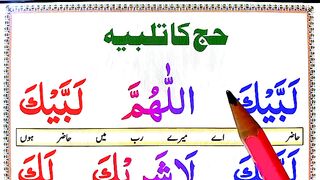 حج کا تلبیہ
لَبَّيْكَ اَللّٰهُمَّ لَبَّيْكَ
حاضر اے میرے رب میں حاضر ہوں
لَبَّيْكَ لَا شَرِيْكَ لَكَ